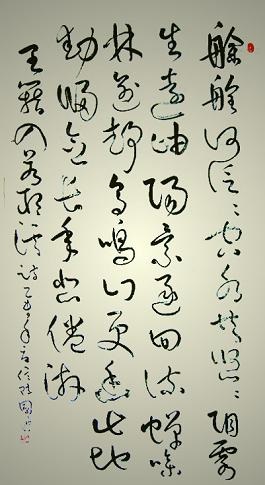 艅艎何泛泛空水共悠悠阴霞
生远岫阳景逐回流蝉噪
林逾静鸟鸣山更幽此地
动归念长年悲倦游
王籍入若耶溪诗